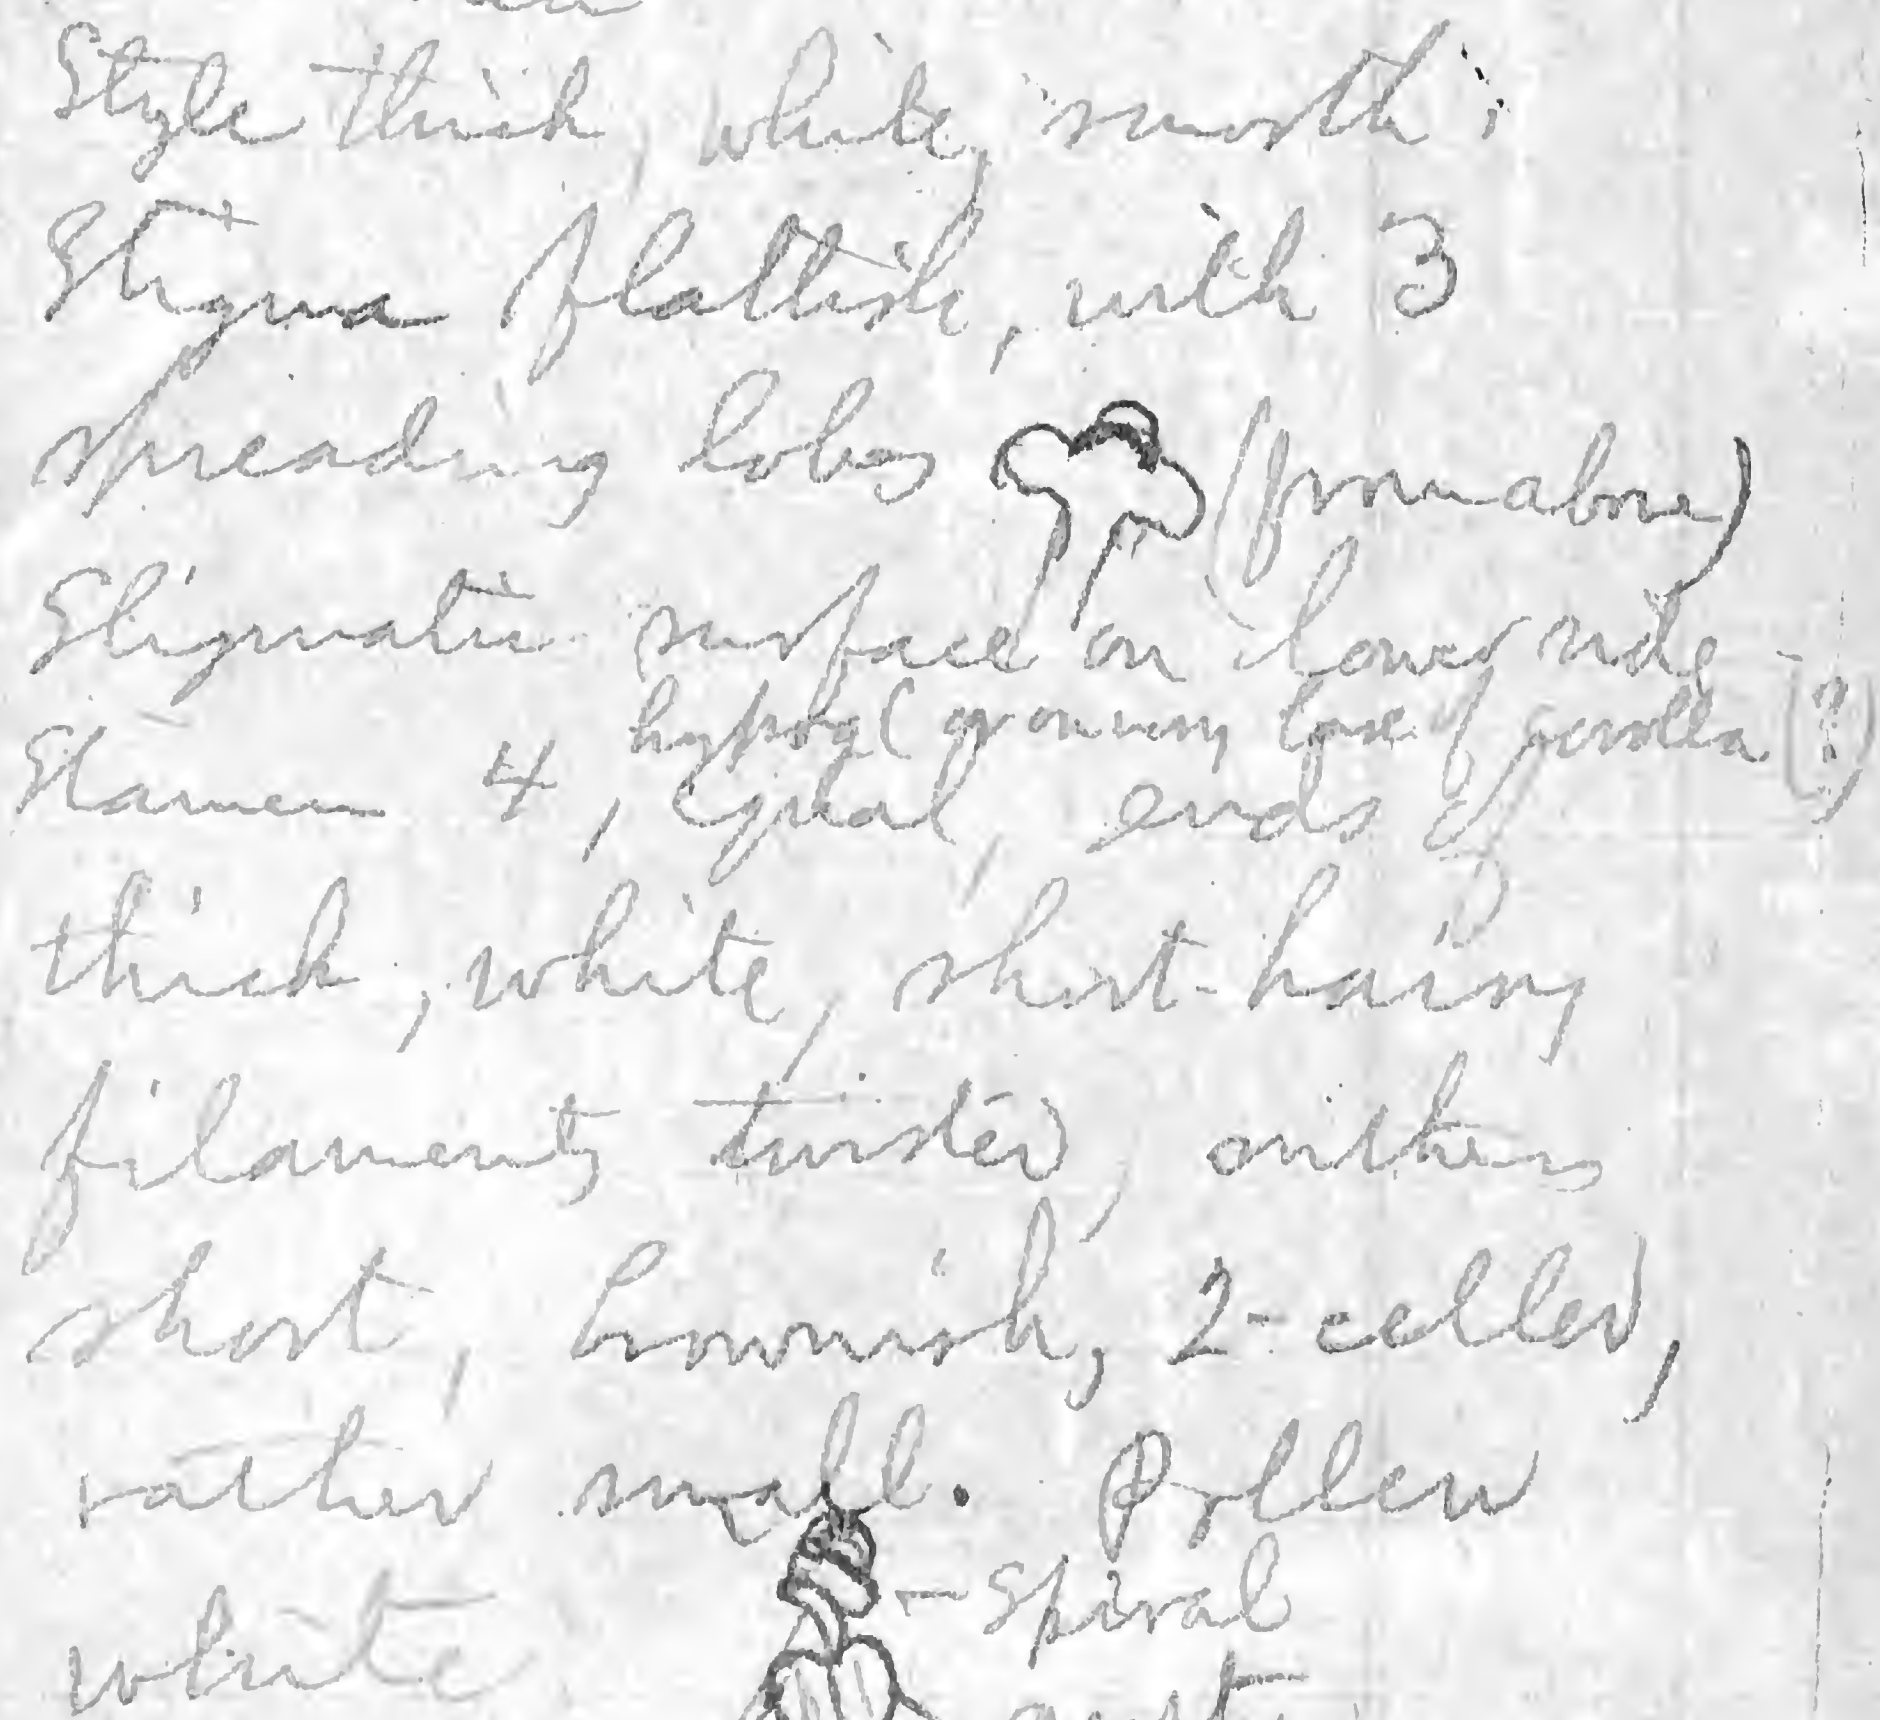 Style thick, white, smooth;
Stigma flattish, with 3
spreading lobes (from above)
Stigmatic surface on lower side
hypog ( on very base of corolla (?)
Stamen 4, equal, ends of
thick, white, short-hairy
filaments twisted, anthers
short, brownish, 2-celled,
rather small. Pollen
- spiral
white